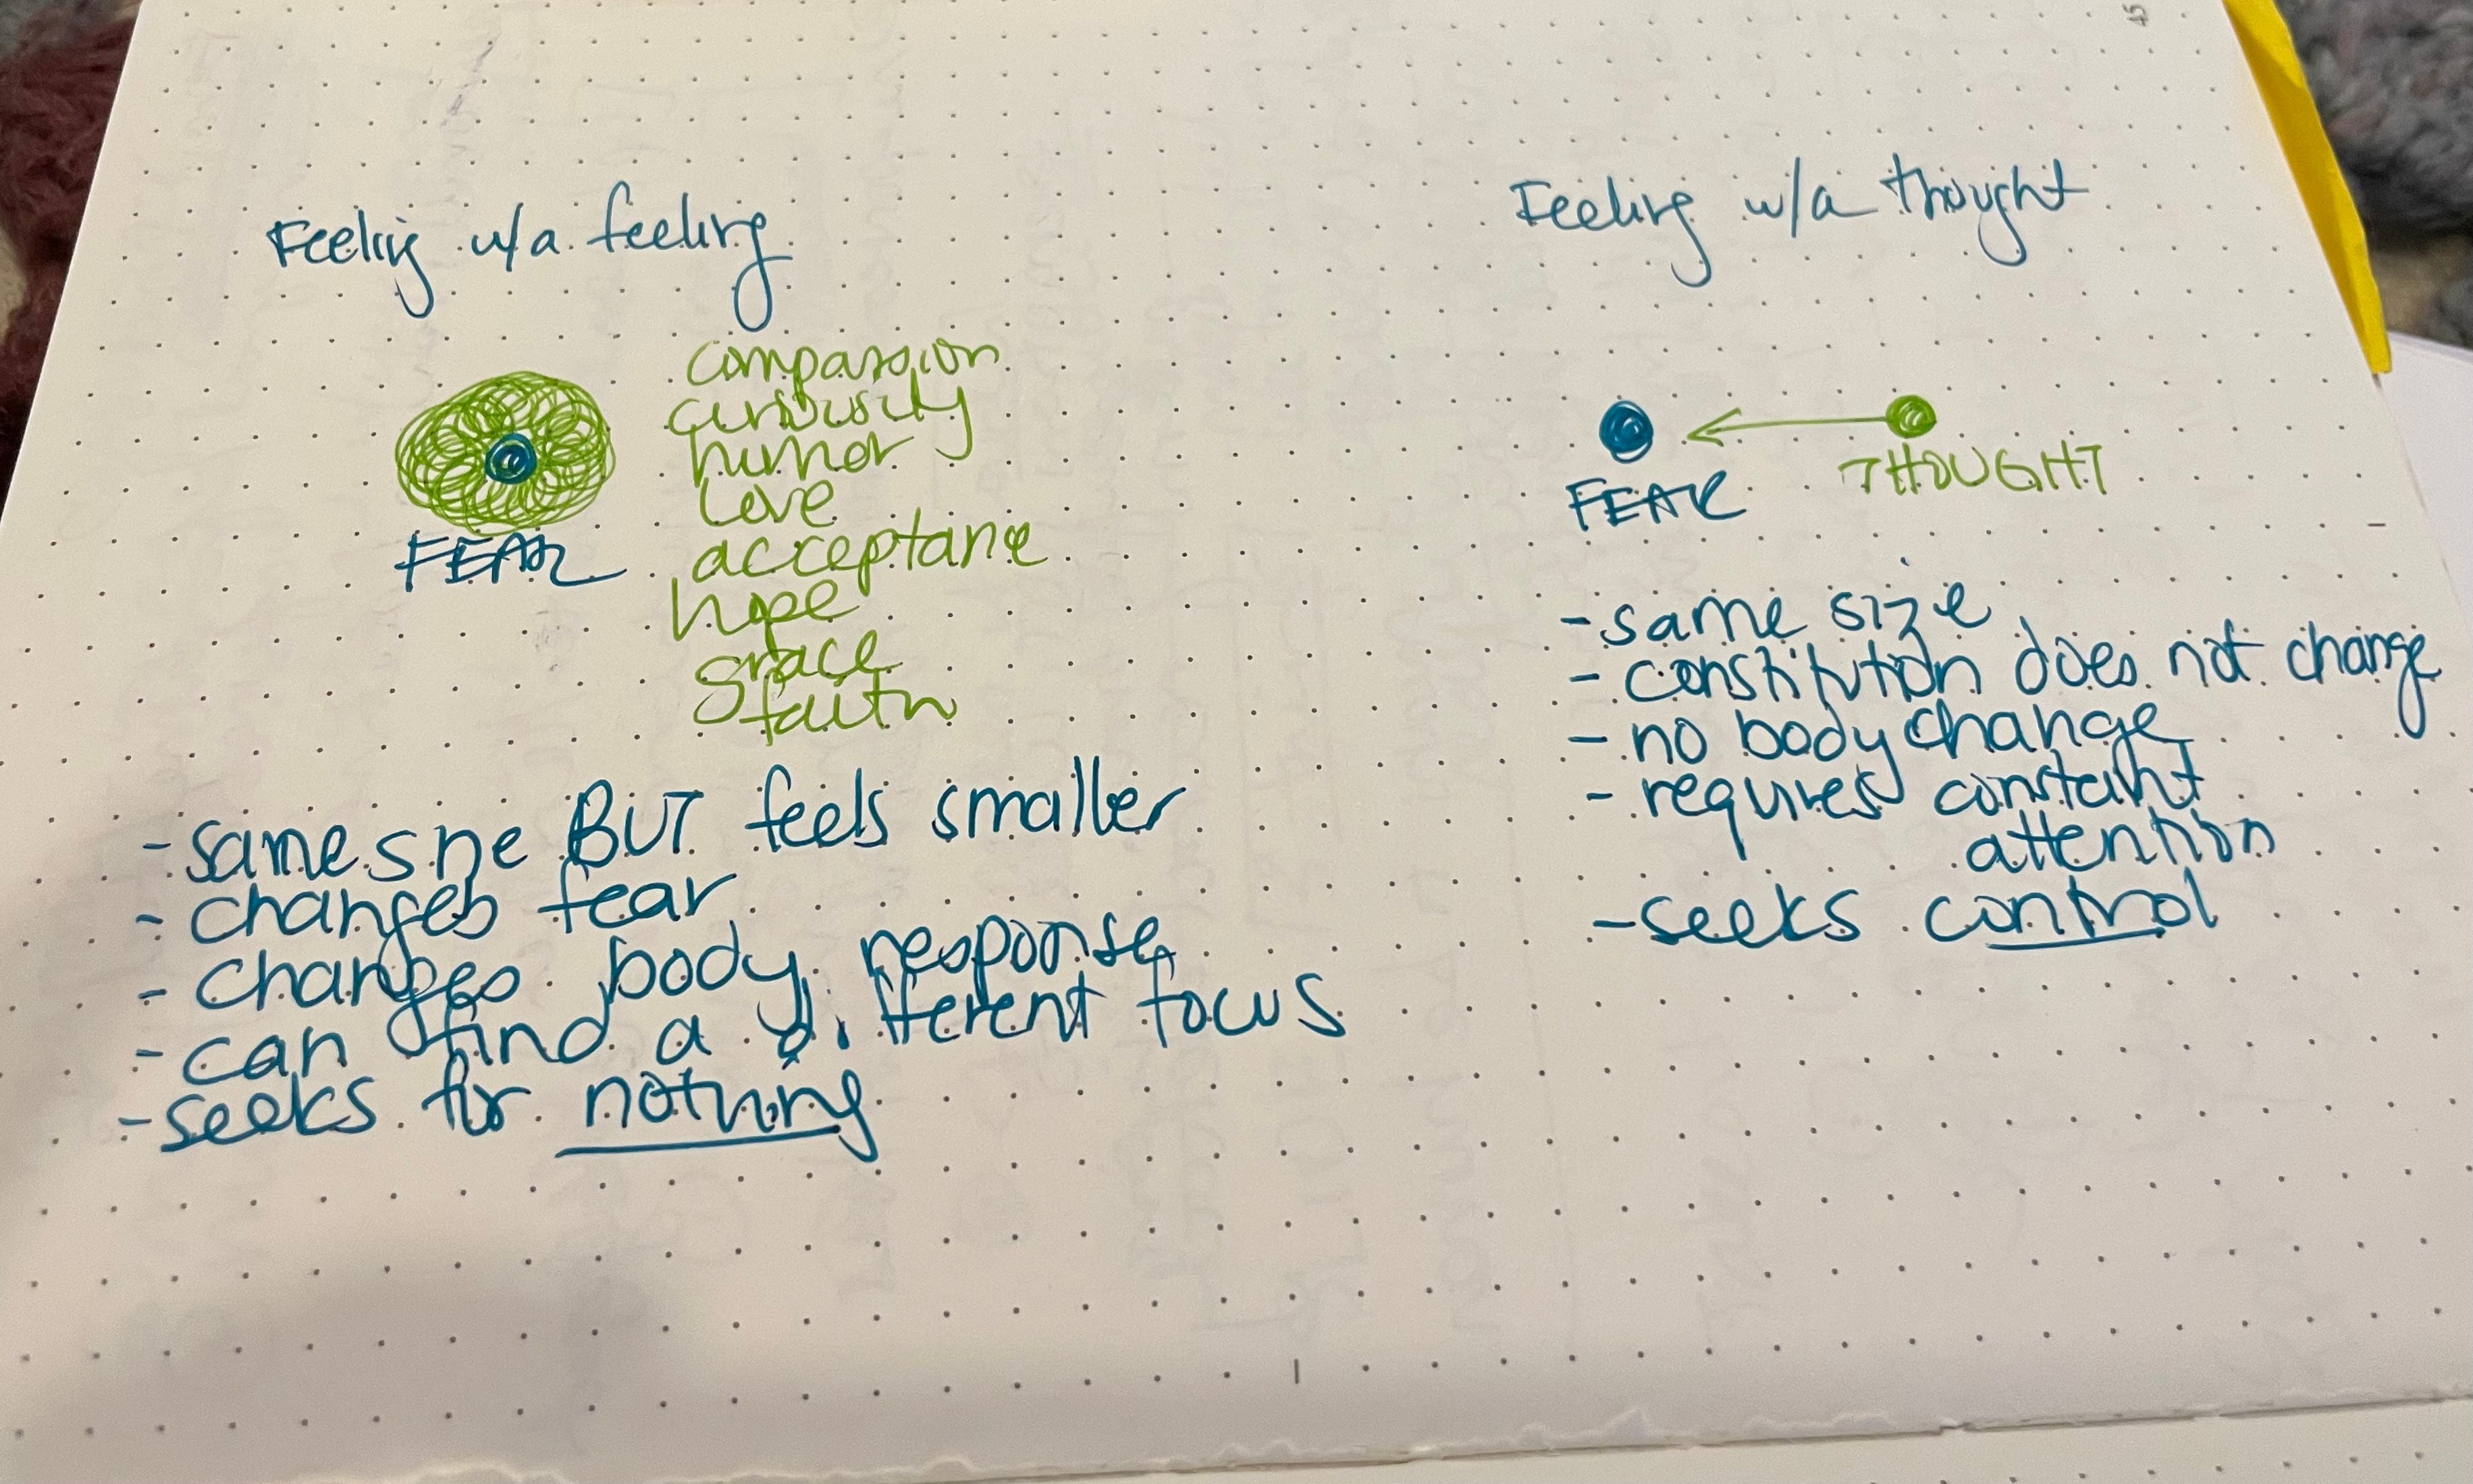 45
Feeling w/a feeling
compassion
curiousity
humor
love
acceptance
hope
grace
faith
FEAR
- same size BUT feels smaller
- changes fear
- changes body response
- can find a different focus
- seeks for nothing
Feeling w/a thought
FEAR
THOUGHT
- same size
- constitution does not change
- no body change
- requires constant
attention
- seeks control